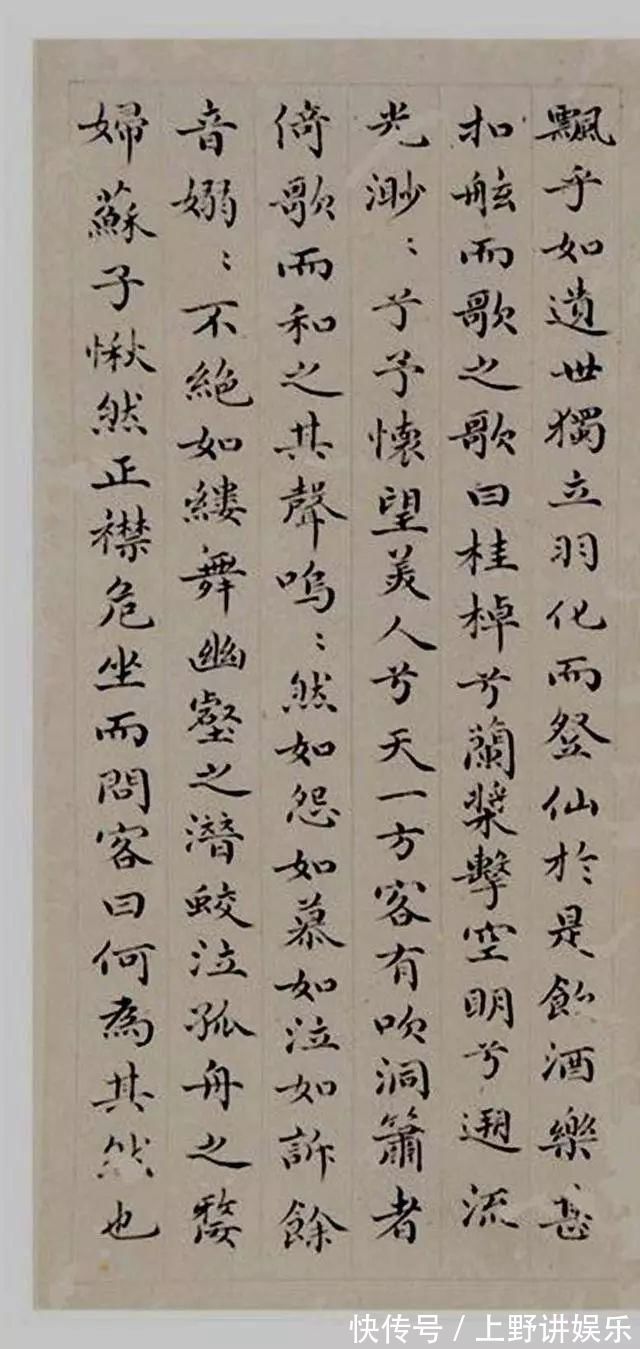 飄乎如遺世獨立羽化而登仙於是飲酒樂甚
扣舷而歌之歌曰桂棹兮蘭槳擊空明兮遡流
光渺〻兮予懷望美人兮天一方客有吹洞簫者
倚歌而和之其聲嗚〻然如怨如慕如泣如訴餘
音嫋〻不絕如縷舞幽壑之潛蛟泣孤舟之嫠
婦蘇子愀然正襟危坐而問客曰何為其然也
快传号/上野讲娱乐